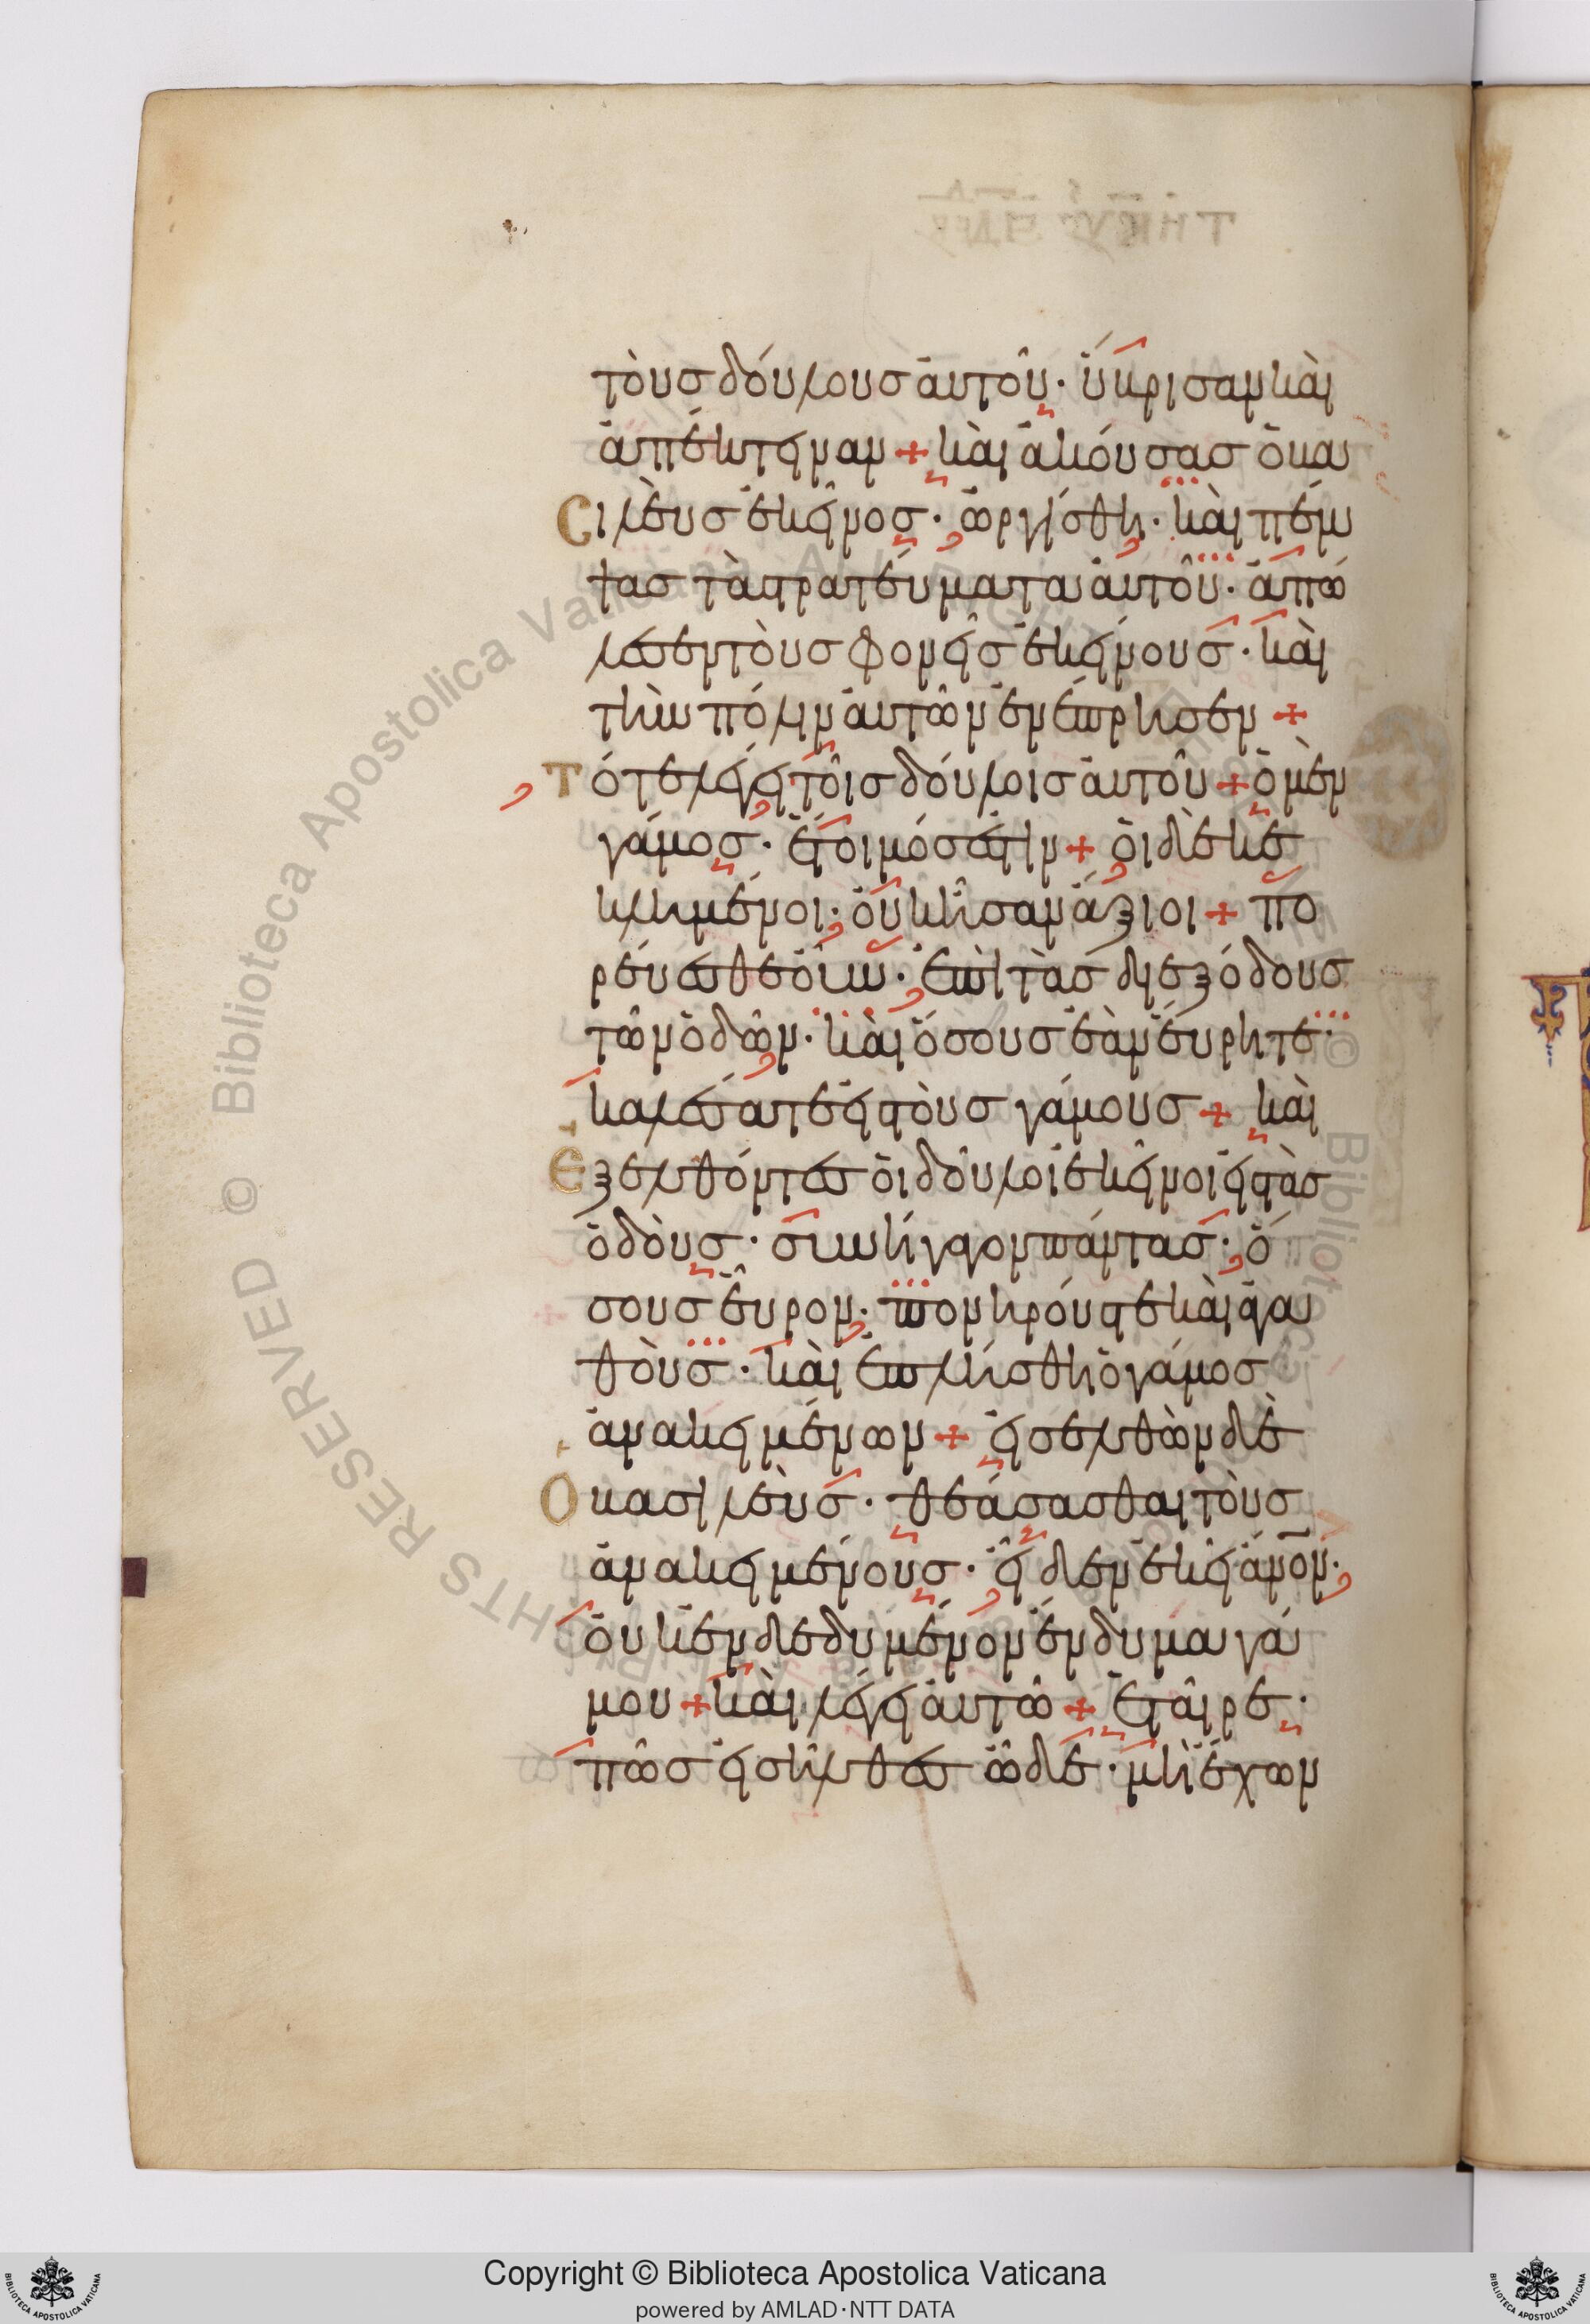 τοὺς δούλους αὐτοῦ· ὕβρισαν καὶ
ἀπέκτειναν + καὶ ἀκούσας ὁ βα
σιλεὺς ἐκεῖνος· ὠργίσθη· καὶ πέμ
ψας τὰ στρατεύματα αὐτοῦ· ἀπώ
λεσεν τοὺς φονεῖς ἐκείνους· καὶ
τὴν πόλιν αὐτῶν ἐνέπρησεν +
τότε λέγει τοῖς δούλοις αὐτοῦ + ὁ μὲν
γάμος· ἕτοιμός ἐστιν + οἱ δὲ κε
κλημένοι· οὐκ ἦσαν ἄξιοι + πο
ρεύεσθε οὖν· ἐπὶ τὰς διεξόδους
τῶν ὁδῶν· καὶ ὅσους ἐὰν εὕρητε·
καλέσατε εἰς τοὺς γάμους + καὶ
ἐξελθόντες οἱ δοῦλοι ἐκεῖνοι εἰς τὰς
ὁδοὺς· συνήγαγον πάντας· ὅ
σους εὗρον· πονηρούς τε καὶ ἀγα
θοὺς· καὶ ἐπλήσθη ὁ γάμος
ἀνακειμένων + εἰσελθὼν δὲ
ὁ βασιλεὺς· θεάσασθαι τοὺς
ἀνακειμένους· εἶδεν ἐκεῖ ἄνον·
οὐκ ἐνδεδυμένον ἔνδυμα γά
μου + καὶ λέγει αὐτῶ + ἑταῖρε·
πῶς εἰσῆλθες ὧδε· μὴ ἔχων
Copyright © Biblioteca Apostolica Vaticana
powered by AMLAD·NTT DATA